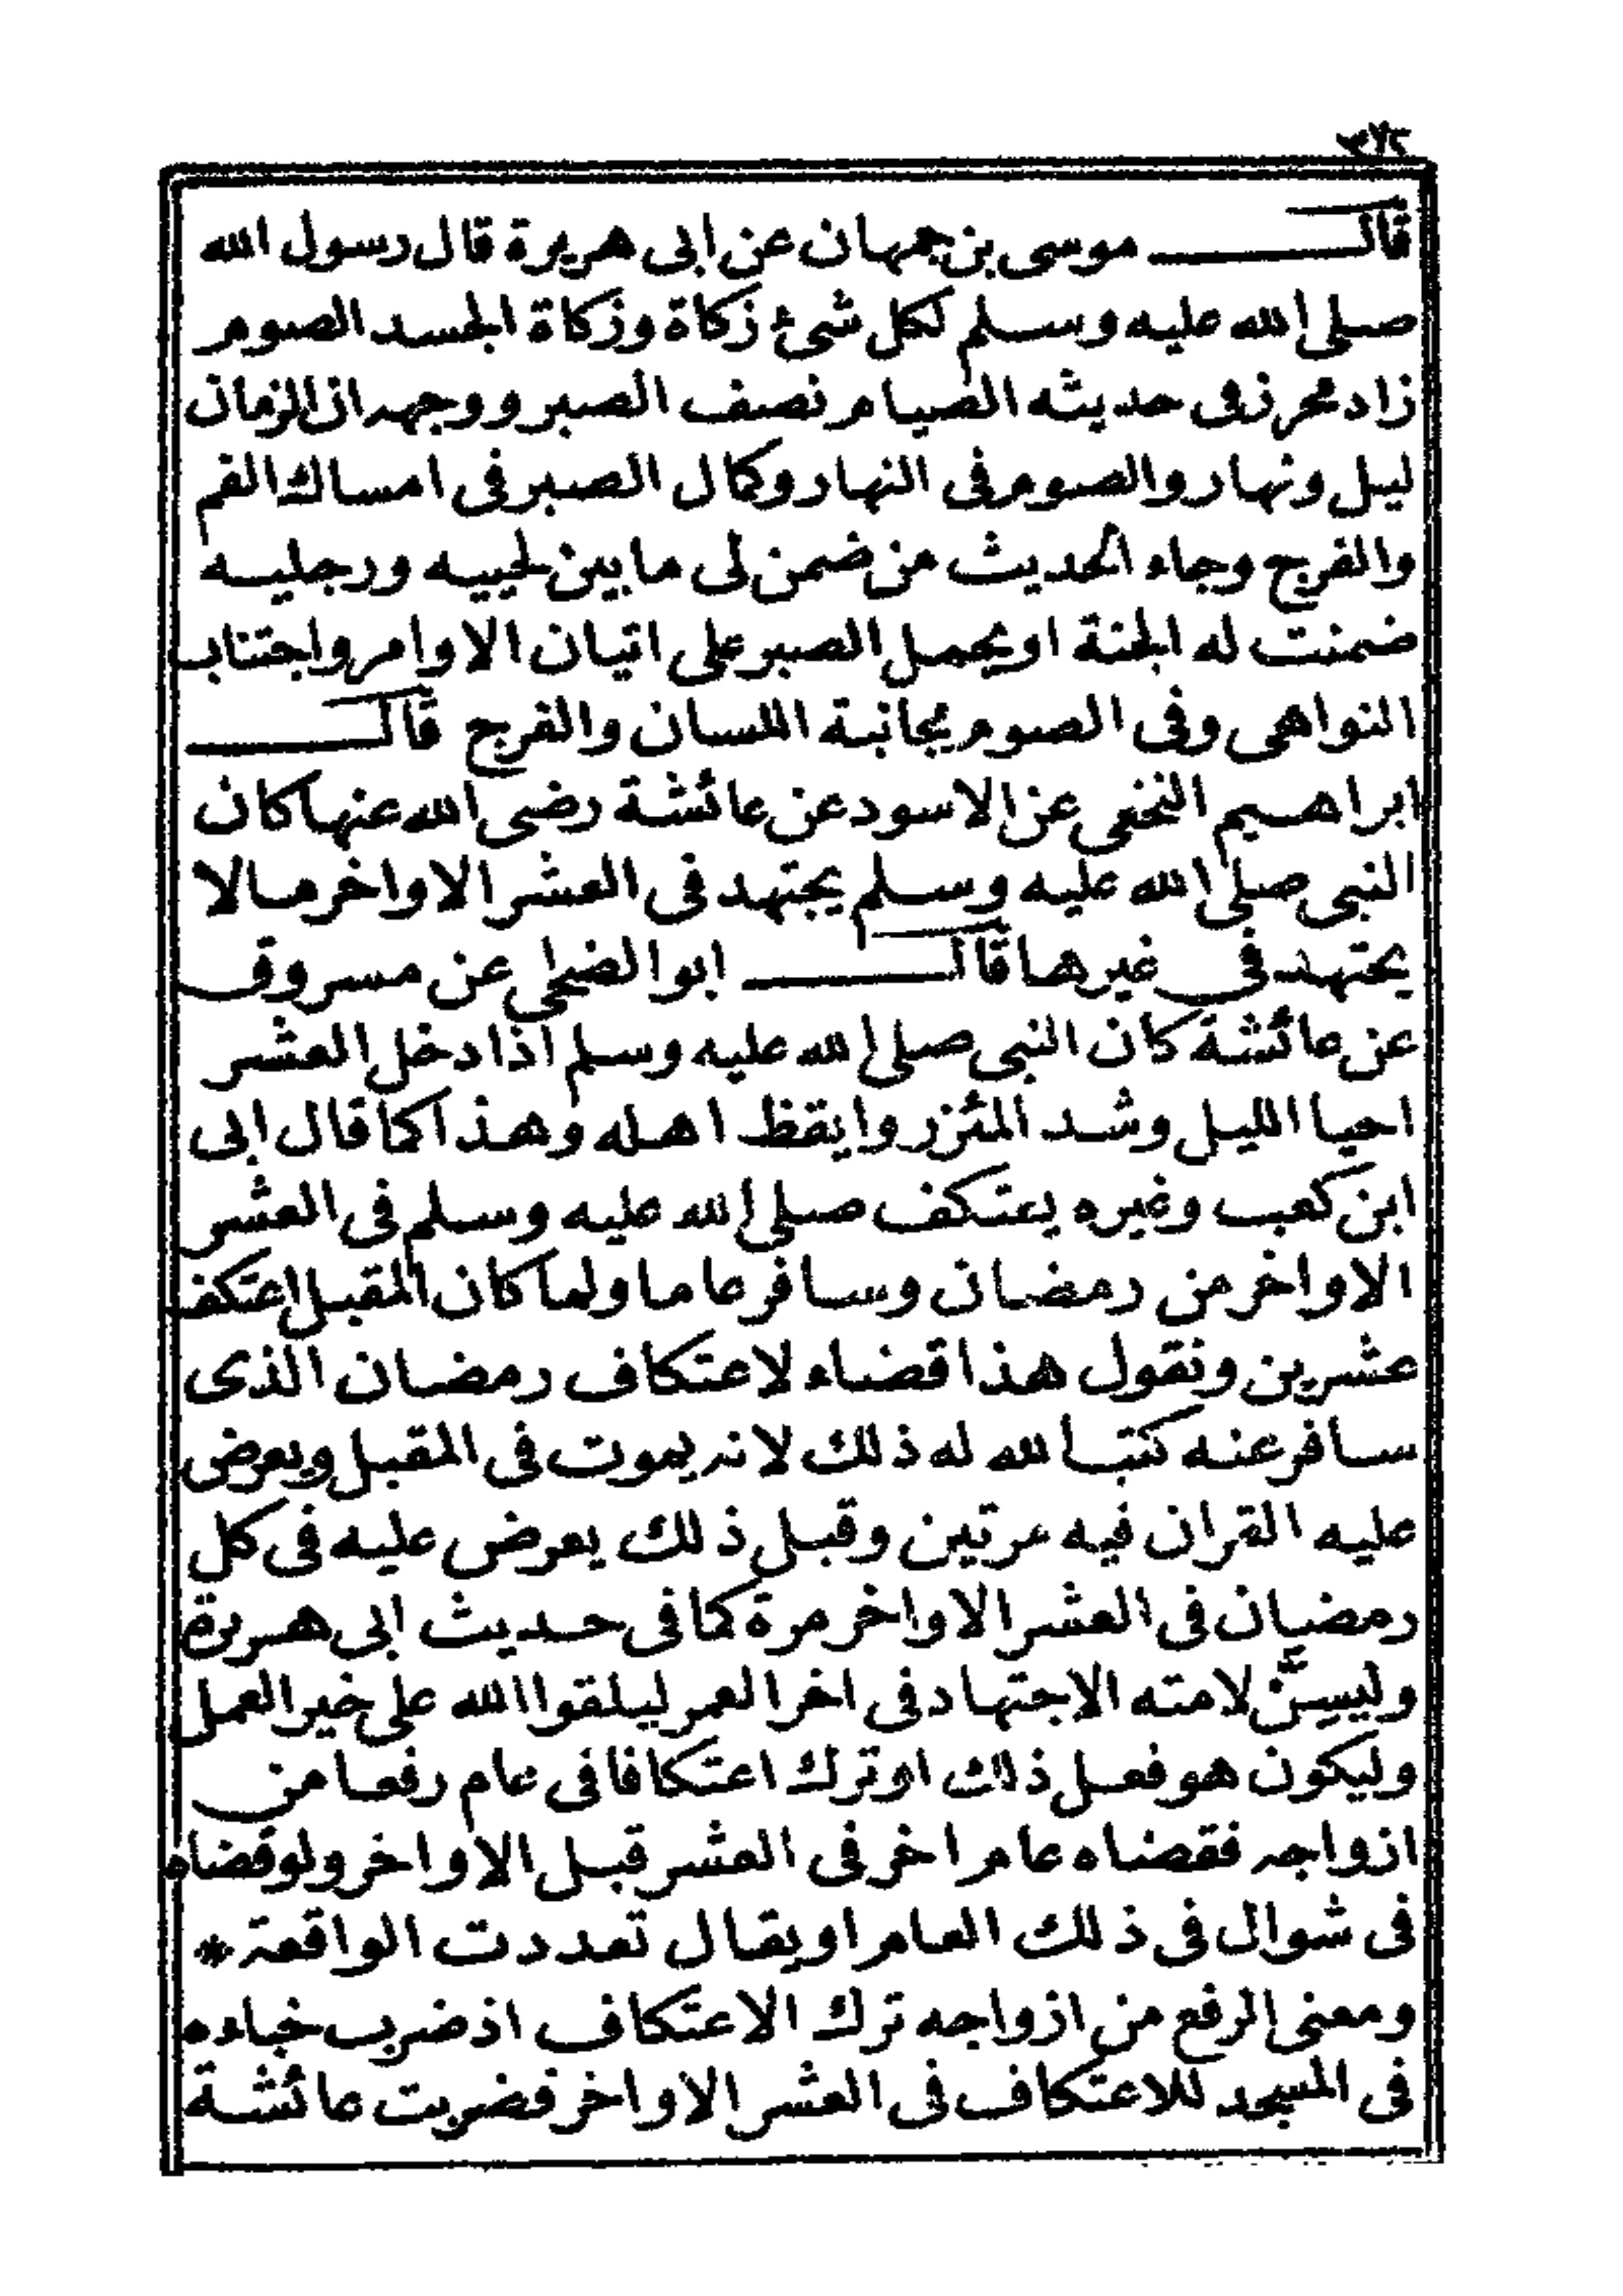 قال موسى بن جمهان عن ابى هريرة قال رسول الله
صلى الله عليه وسلم لكل شئ زكاة وزكاة الجسد الصوم
زاد محرز فى حديثه الصيام نصف الصبر ووجهه ان الزمان
ليل ونهار والصوم فى النهار وكمال الصبر فى امساك الفم
والفرج وجاء الحديث من ضمن لى ما بين لحييه ورجليه
ضمنت له الجنة او يحمل الصبر على اتيان الاوامر واجتناب
النواهى وفى الصوم مجانبة اللسان والفرج قال
ابراهيم النخعى عن الاسود عن عائشة رضى الله عنها كان
النبى صلى الله عليه وسلم يجتهد فى العشر الاواخر ما لا
يجتهد فى غيرها قال ابو الضحى عن مسروق
عن عائشة كان النبى صلى الله عليه وسلم اذا دخل العشر
احيا الليل وشد المئزر وايقظ اهله وهذا كما قال ابى
ابن كعب وغيره يعتكف صلى الله عليه وسلم فى العشر
الاواخر من رمضان وسافر عاما ولما كان المقبل اعتكف
عشرين ونقول هذا قضاء لاعتكاف رمضان الذى
سافر عنه كتب الله له ذلك لانه يموت فى المقبل ويعرض
عليه القران فيه مرتين وقبل ذلك يعرض عليه فى كل
رمضان فى العشر الاواخر مرة كما فى حديث ابى هريرة
وليسنّ لامته الاجتهاد فى اخر العمر ليلقوا الله على خير العمل
وليكون هو فعل ذلك او ترك اعتكافا فى عام رفعا من
ازواجه فقضاه عام اخر فى العشر قبل الاواخر ولو قضاه
فى شوال فى ذلك العام او يقال تعددت الواقعة *
ومعنى الرفع من ازواجه ترك الاعتكاف اذ ضرب خباءه
فى المسجد للاعتكاف فى العشر الاواخر فضربت عائشة